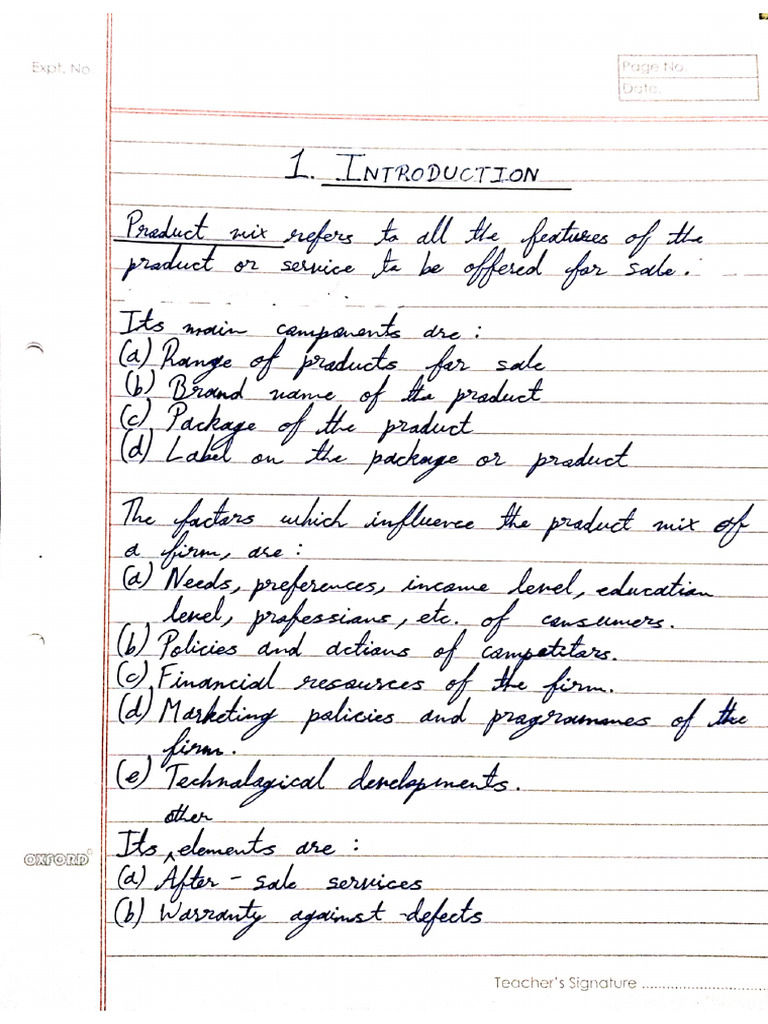 Expt. No.
Page No.
Date.
1. INTRODUCTION
Product mix refers to all the features of the
product or service to be offered for sale.
Its main components are :
(a) Range of products for sale
(b) Brand name of the product
(c) Package of the product
(d) Label on the package or product
The factors which influence the product mix of
a firm, are :
(a) Needs, preferences, income level, education
level, professions, etc. of consumers.
(b) Policies and actions of competitors.
(c) Financial resources of the firm.
(d) Marketing policies and programmes of the
firm.
(e) Technological developments.
other
Its ^ elements are :
(a) After - sale services
(b) Warranty against defects
OXFORD
Teacher's Signature